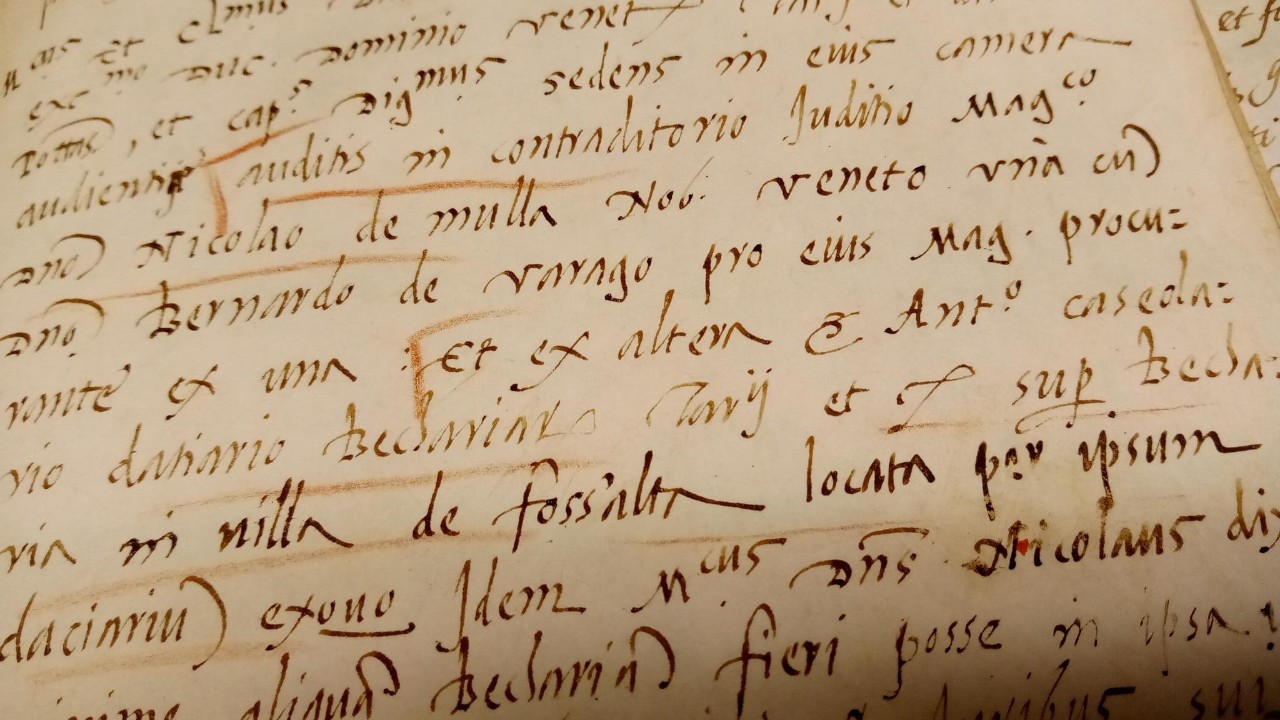 et Cl.mus
exc.mo Duc. Dominio Venet
Pottas, et cap.s Dig.mus sedens in eius camera
audientiæ auditis in contraditorio Juditio Mag.co
Dno Nicolao de mulla Nob. veneto vña cũ
Dno Bernardo de varago pro eius Mag. procu=
rante ex una : Et ex altera Ant.o caseola=
rio datiario Bechariar Tarij et sup Becha=
ria in villa de fossalta locata per ipsum
daciariũ exouo Idem M.cus Dñs Nicolaus
aliquã Bechariã fieri posse in ipsa